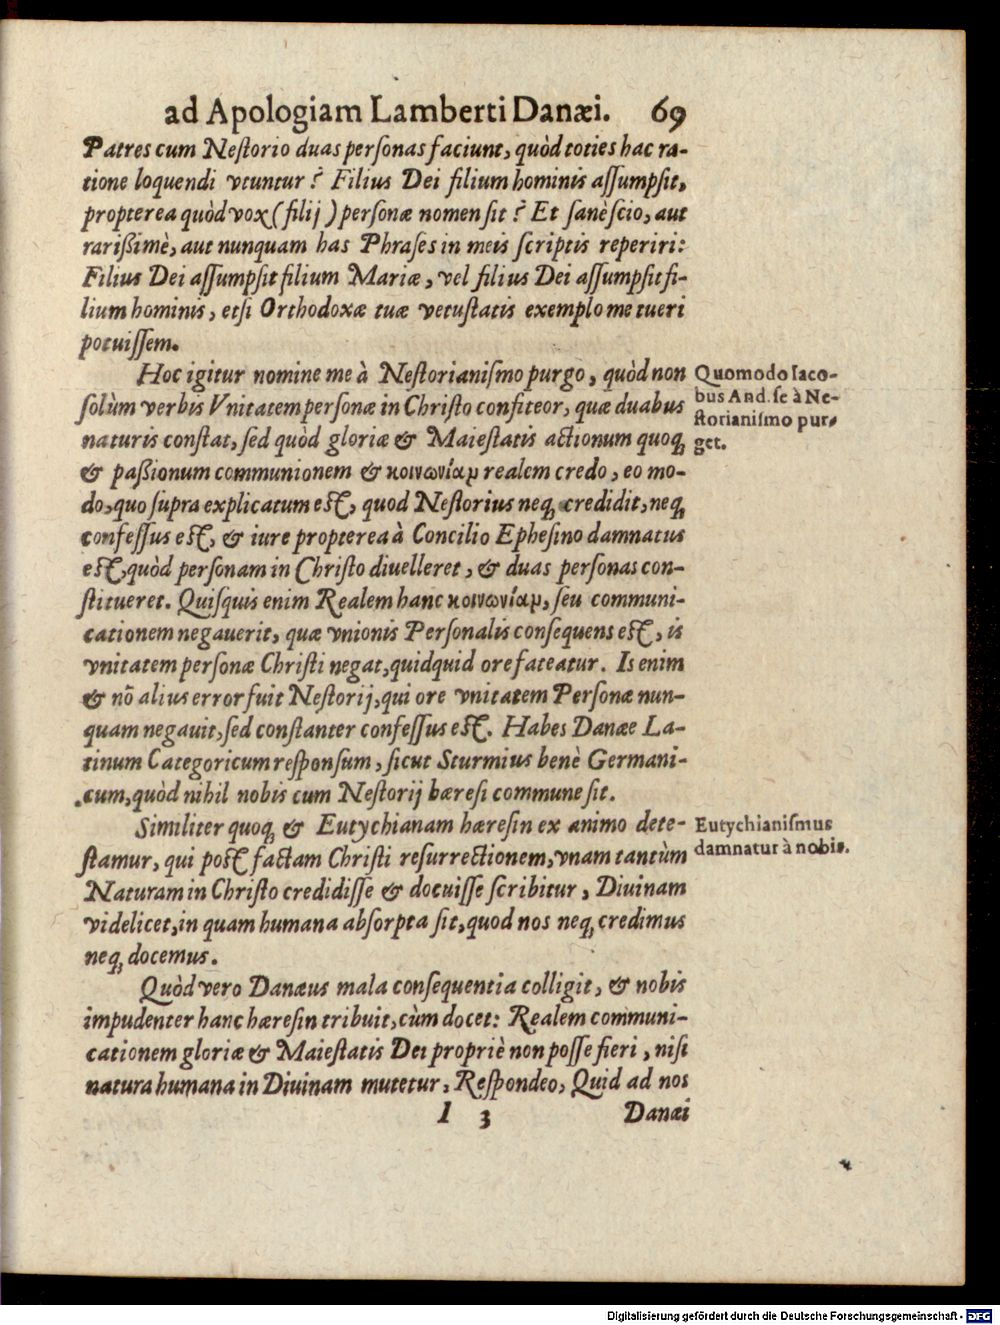 ad Apologiam Lamberti Danæi. 69
Patres cum Neſtorio duas perſonas faciunt, quòd toties hac ra-
tione loquendi vtuntur? Filius Dei filium hominis aſſumpſit,
propterea quòd vox (filij) perſonæ nomen ſit? Et ſanè ſcio, aut
rarißimè, aut nunquam has Phraſes in meis ſcriptis reperiri:
Filius Dei aſſumpſit filium Mariæ, vel filius Dei aſſumpſit fi-
lium hominis, etſi Orthodoxæ tuæ vetuſtatis exemplo me tueri
potuiſſem.
Hoc igitur nomine me à Neſtorianiſmo purgo, quòd non
ſolùm verbis Vnitatem perſonæ in Chriſto confiteor, quæ duabus
naturis conſtat, ſed quòd gloriæ & Maieſtatis actionum quoq;
& paßionum communionem & κοινωνίαμ realem credo, eo mo-
do, quo ſupra explicatum eſt, quod Neſtorius neq; credidit, neq;
confeſſus eſt, & iure propterea à Concilio Epheſino damnatus
eſt, quòd perſonam in Chriſto diuelleret, & duas perſonas con-
ſtitueret. Quiſquis enim Realem hanc κοινωνίαμ, ſeu communi-
cationem negauerit, quæ vnionis Perſonalis conſequens eſt, is
vnitatem perſonæ Chriſti negat, quidquid ore fateatur. Is enim
& nõ alius error fuit Neſtorij, qui ore vnitatem Perſonæ nun-
quam negauit, ſed conſtanter confeſſus eſt. Habes Danæe La-
tinum Categoricum reſponſum, ſicut Sturmius benè Germani-
cum, quòd nihil nobis cum Neſtorij hæreſi commune ſit.
Similiter quoq; & Eutychianam hæreſin ex animo dete-
ſtamur, qui poſt factam Chriſti reſurrectionem, vnam tantùm
Naturam in Chriſto credidiſſe & docuiſſe ſcribitur, Diuinam
videlicet, in quam humana abſorpta ſit, quod nos neq; credimus
neq; docemus.
Quòd vero Danæus mala conſequentia colligit, & nobis
impudenter hanc hæreſin tribuit, cùm docet: Realem communi-
cationem gloriæ & Maieſtatis Dei propriè non poſſe fieri, niſi
natura humana in Diuinam mutetur, Reſpondeo, Quid ad nos
I 3 Danæi
Quomodo Iaco-
bus And. ſe à Ne-
ſtorianiſmo pur-
get.
Eutychianiſmus
damnatur à nobis.
Digitalisierung gefördert durch die Deutsche Forschungsgemeinschaft - DFG